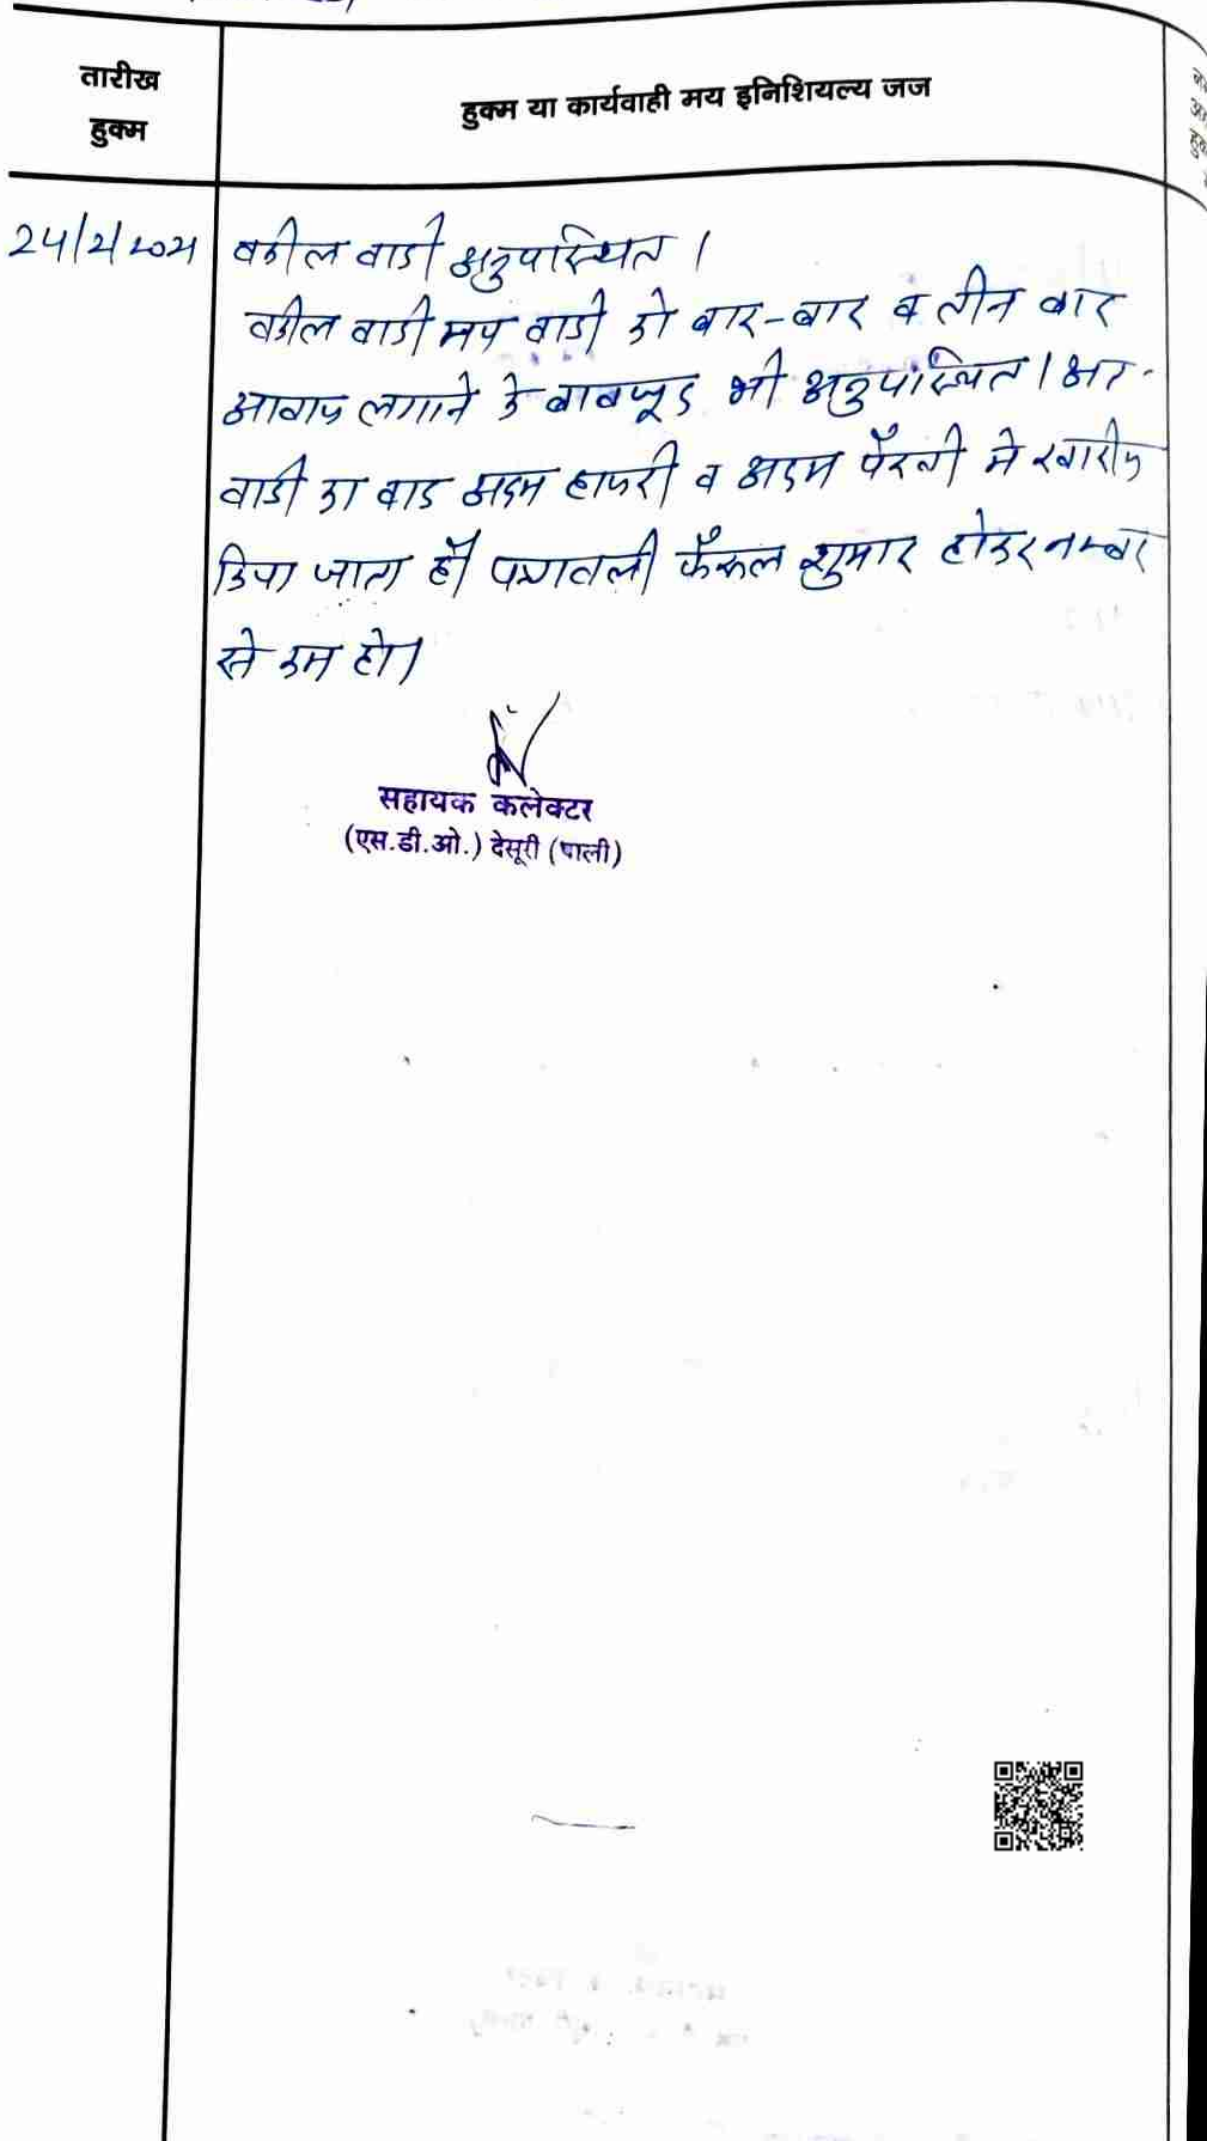 तारीख
हुक्म
हुक्म या कार्यवाही मय इनिशियल्य जज
24/2/2021 वकील वादी अनुपस्थित ।
वकील वादी मय वादी को बार-बार व तीन बार
आवाज लगाने के बावजूद भी अनुपस्थित । अतः
वादी का वाद अदम हाजरी व अदम पैरवी मे खारीज
किया जाता है। पत्रावली फैसल शुमार होकर नम्बर
से कम हो।
सहायक कलेक्टर
(एस.डी.ओ.) देसूरी (पाली)